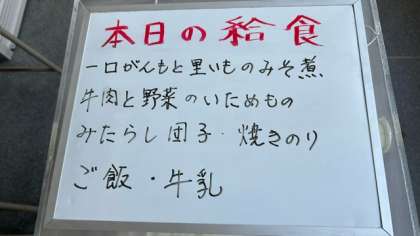 本日の給食
一口がんもと里いものみそ煮
牛肉と野菜のいためもの
みたらし団子・焼きのり
ご飯・牛乳